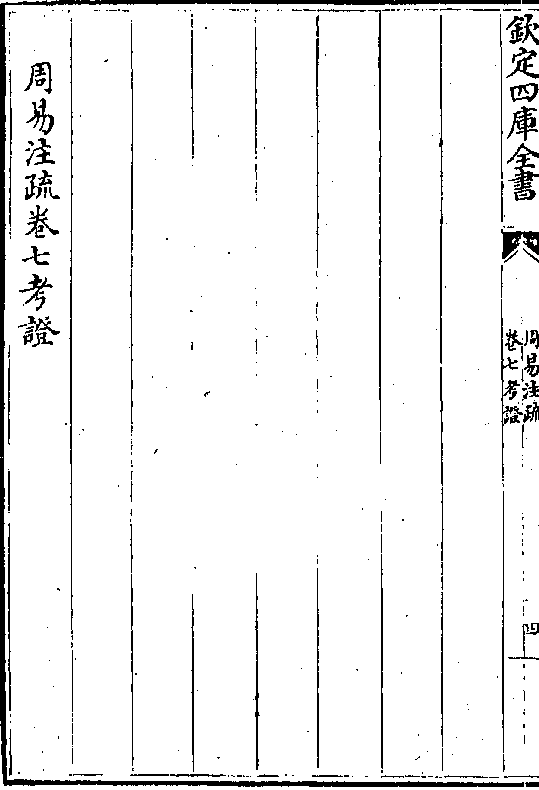 欽定四庫全書
周易注疏
卷七考證
四
周易注疏卷七考證